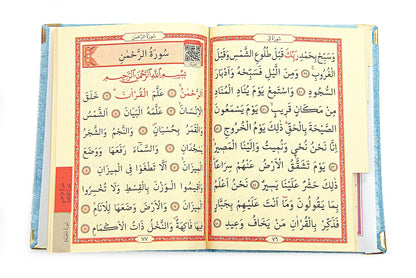 سورة ق
وَسَبِّحْ بِحَمْدِ رَبِّكَ قَبْلَ طُلُوعِ الشَّمْسِ وَقَبْلَ
الْغُرُوبِ وَمِنَ الَّيْلِ فَسَبِّحْهُ وَاَدْبَارَ
السُّجُودِ وَاسْتَمِعْ يَوْمَ يُنَادِ الْمُنَادِ
مِنْ مَكَانٍ قَرِيبٍ يَوْمَ يَسْمَعُونَ
الصَّيْحَةَ بِالْحَقِّ ذٰلِكَ يَوْمُ الْخُرُوجِ
اِنَّا نَحْنُ نُحْيِي وَنُمِيتُ وَاِلَيْنَا الْمَصِيرُ
يَوْمَ تَشَقَّقُ الْاَرْضُ عَنْهُمْ سِرَاعًا
ذٰلِكَ حَشْرٌ عَلَيْنَا يَسِيرٌ نَحْنُ اَعْلَمُ
بِمَا يَقُولُونَ وَمَا اَنْتَ عَلَيْهِمْ بِجَبَّارٍ
فَذَكِّرْ بِالْقُرْاٰنِ مَنْ يَخَافُ وَعِيدِ
٧٦
سورة الرحمن
سُورَةُ الرَّحْمٰنِ
بِسْمِ اللّٰهِ الرَّحْمٰنِ الرَّحِيمِ
اَلرَّحْمٰنُ عَلَّمَ الْقُرْاٰنَ خَلَقَ
الْاِنْسَانَ عَلَّمَهُ الْبَيَانَ اَلشَّمْسُ
وَالْقَمَرُ بِحُسْبَانٍ وَالنَّجْمُ وَالشَّجَرُ
يَسْجُدَانِ وَالسَّمَاءَ رَفَعَهَا وَوَضَعَ
الْمِيزَانَ اَلَّا تَطْغَوْا فِي الْمِيزَانِ
وَاَقِيمُوا الْوَزْنَ بِالْقِسْطِ وَلَا تُخْسِرُوا
الْمِيزَانَ وَالْاَرْضَ وَضَعَهَا لِلْاَنَامِ
فِيهَا فَاكِهَةٌ وَالنَّخْلُ ذَاتُ الْاَكْمَامِ
٧٧